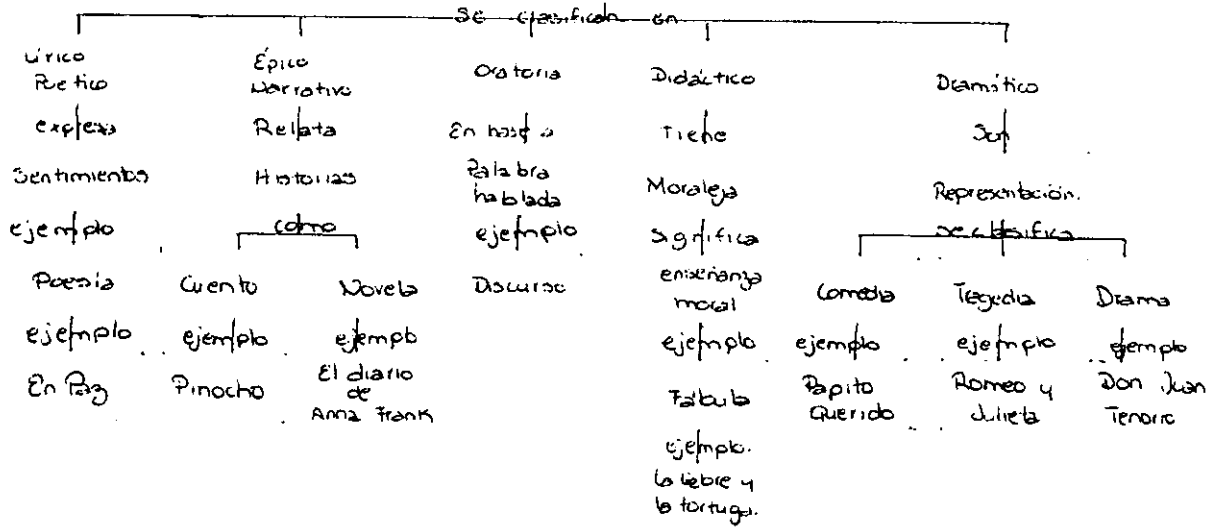 Se clasifican en
Lírico
Poetico
expresa
Sentimientos
ejemplo
Poesía
ejemplo
En Paz
Épico
Narrativo
Relata
Historias
como
Cuento
ejemplo
Pinocho
Novela
ejemplo
El diario
de
Anna Frank
Oratoria
En base a
Palabra
hablada
ejemplo
Discurso
Didáctico
Tiene
Moraleja
Significa
enseñanza
moral
ejemplo
Fábula
ejemplo.
la liebre y
la tortuga.
Dramático
Son
Representación.
se clasifica
Comedia
ejemplo
Papito
Querido
Tegedia
ejemplo
Romeo y
Julieta
Drama
ejemplo
Don Juan
Tenorio